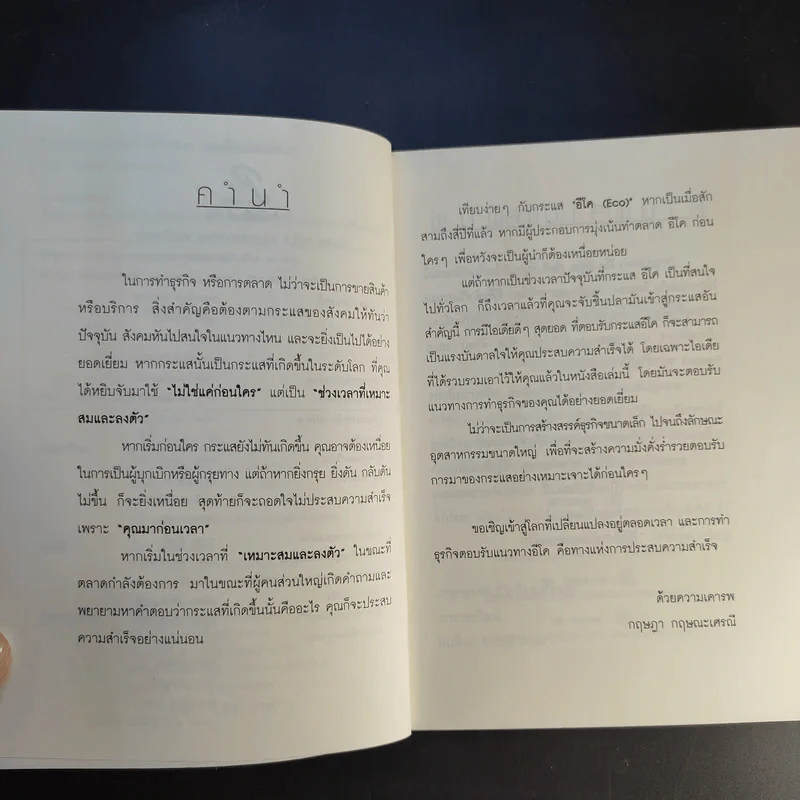 คำนำ
ในการทำธุรกิจ หรือการตลาด ไม่ว่าจะเป็นการขายสินค้า
หรือบริการ สิ่งสำคัญคือต้องตามกระแสของสังคมให้ทันว่า
ปัจจุบัน สังคมหันไปสนใจในแนวทางไหน และจะยิ่งเป็นไปได้อย่าง
ยอดเยี่ยม หากกระแสนั้นเป็นกระแสที่เกิดขึ้นในระดับโลก ที่คุณ
ได้หยิบจับมาใช้ "ไม่ใช่แค่ก่อนใคร" แต่เป็น "ช่วงเวลาที่เหมาะ
สมและลงตัว"
หากเริ่มก่อนใคร กระแสยังไม่ทันเกิดขึ้น คุณอาจต้องเหนื่อย
ในการเป็นผู้บุกเบิกหรือผู้กรุยทาง แต่ถ้าหากยิ่งกรุย ยิ่งดัน กลับดัน
ไม่ขึ้น ก็จะยิ่งเหนื่อย สุดท้ายก็จะถอดใจไม่ประสบความสำเร็จ
เพราะ "คุณมาก่อนเวลา"
หากเริ่มในช่วงเวลาที่ "เหมาะสมและลงตัว" ในขณะที่
ตลาดกำลังต้องการ มาในขณะที่ผู้คนส่วนใหญ่เกิดคำถามและ
พยายามหาคำตอบว่ากระแสที่เกิดขึ้นนั้นคืออะไร คุณก็จะประสบ
ความสำเร็จอย่างแน่นอน
เทียบง่ายๆ กับกระแส "อีโค (Eco)" หากเป็นเมื่อสัก
สามถึงสี่ปีที่แล้ว หากมีผู้ประกอบการมุ่งเน้นทำตลาด อีโค ก่อน
ใครๆ เพื่อหวังจะเป็นผู้นำก็ต้องเหนื่อยหน่อย
แต่ถ้าหากเป็นช่วงเวลาปัจจุบันที่กระแส อีโค เป็นที่สนใจ
ไปทั่วโลก ก็ถึงเวลาแล้วที่คุณจะจับชิ้นปลามันเข้าสู่กระแสอัน
สำคัญนี้ การมีไอเดียดีๆ สุดยอด ที่ตอบรับกระแสอีโค ก็จะสามารถ
เป็นแรงบันดาลใจให้คุณประสบความสำเร็จได้ โดยเฉพาะไอเดีย
ที่ได้รวบรวมเอาไว้ให้คุณแล้วในหนังสือเล่มนี้ โดยมันจะตอบรับ
แนวทางการทำธุรกิจของคุณได้อย่างยอดเยี่ยม
ไม่ว่าจะเป็นการสร้างสรรค์ธุรกิจขนาดเล็ก ไปจนถึงลักษณะ
อุตสาหกรรมขนาดใหญ่ เพื่อที่จะสร้างความมั่งคั่งร่ำรวยตอบรับ
การมาของกระแสอย่างเหมาะเจาะได้ก่อนใครๆ
ขอเชิญเข้าสู่โลกที่เปลี่ยนแปลงอยู่ตลอดเวลา และการทำ
ธุรกิจตอบรับแนวทางอีโค คือทางแห่งการประสบความสำเร็จ
ด้วยความเคารพ
กฤษฎา กฤษณะเศรณี